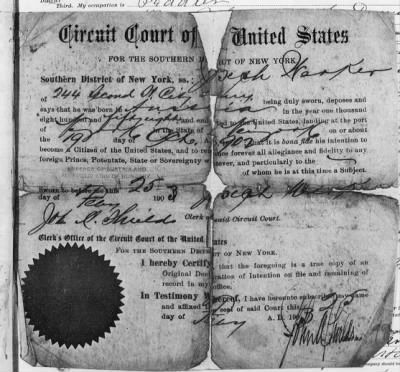 Third. My occupation is Peddler
Circuit Court of United States
FOR THE SOUTHERN DISTRICT OF NEW YORK.
Southern District of New York, ss.: Joseph
of 244 Second St City being duly sworn, deposes and
says that he was born in Russia in the year one thousand
eight hundred and and to the United States, landing at the port
of the State of on or about
the day of A. 190 that it is bona fide his intention to
become a Citizen of the United States, and to renounce forever all allegiance and fidelity to any
foreign Prince, Potentate, State or Sovereignty whatever, and particularly to the
of whom he is at this time a Subject.
Sworn to before me this 25 Joseph
day of Feby 1903
John A. Shields Clerk of said Circuit Court.
Clerk's Office of the Circuit Court of the United States
FOR THE SOUTHERN DISTRICT OF NEW YORK.
I hereby Certify, that the foregoing is a true copy of an
Original Declaration of Intention on file and remaining of
record in my office.
In Testimony Whereof, I have hereunto subscribed my name
and affixed the seal of said Court this 25
day of Feby A. D. 190
John A. Shields